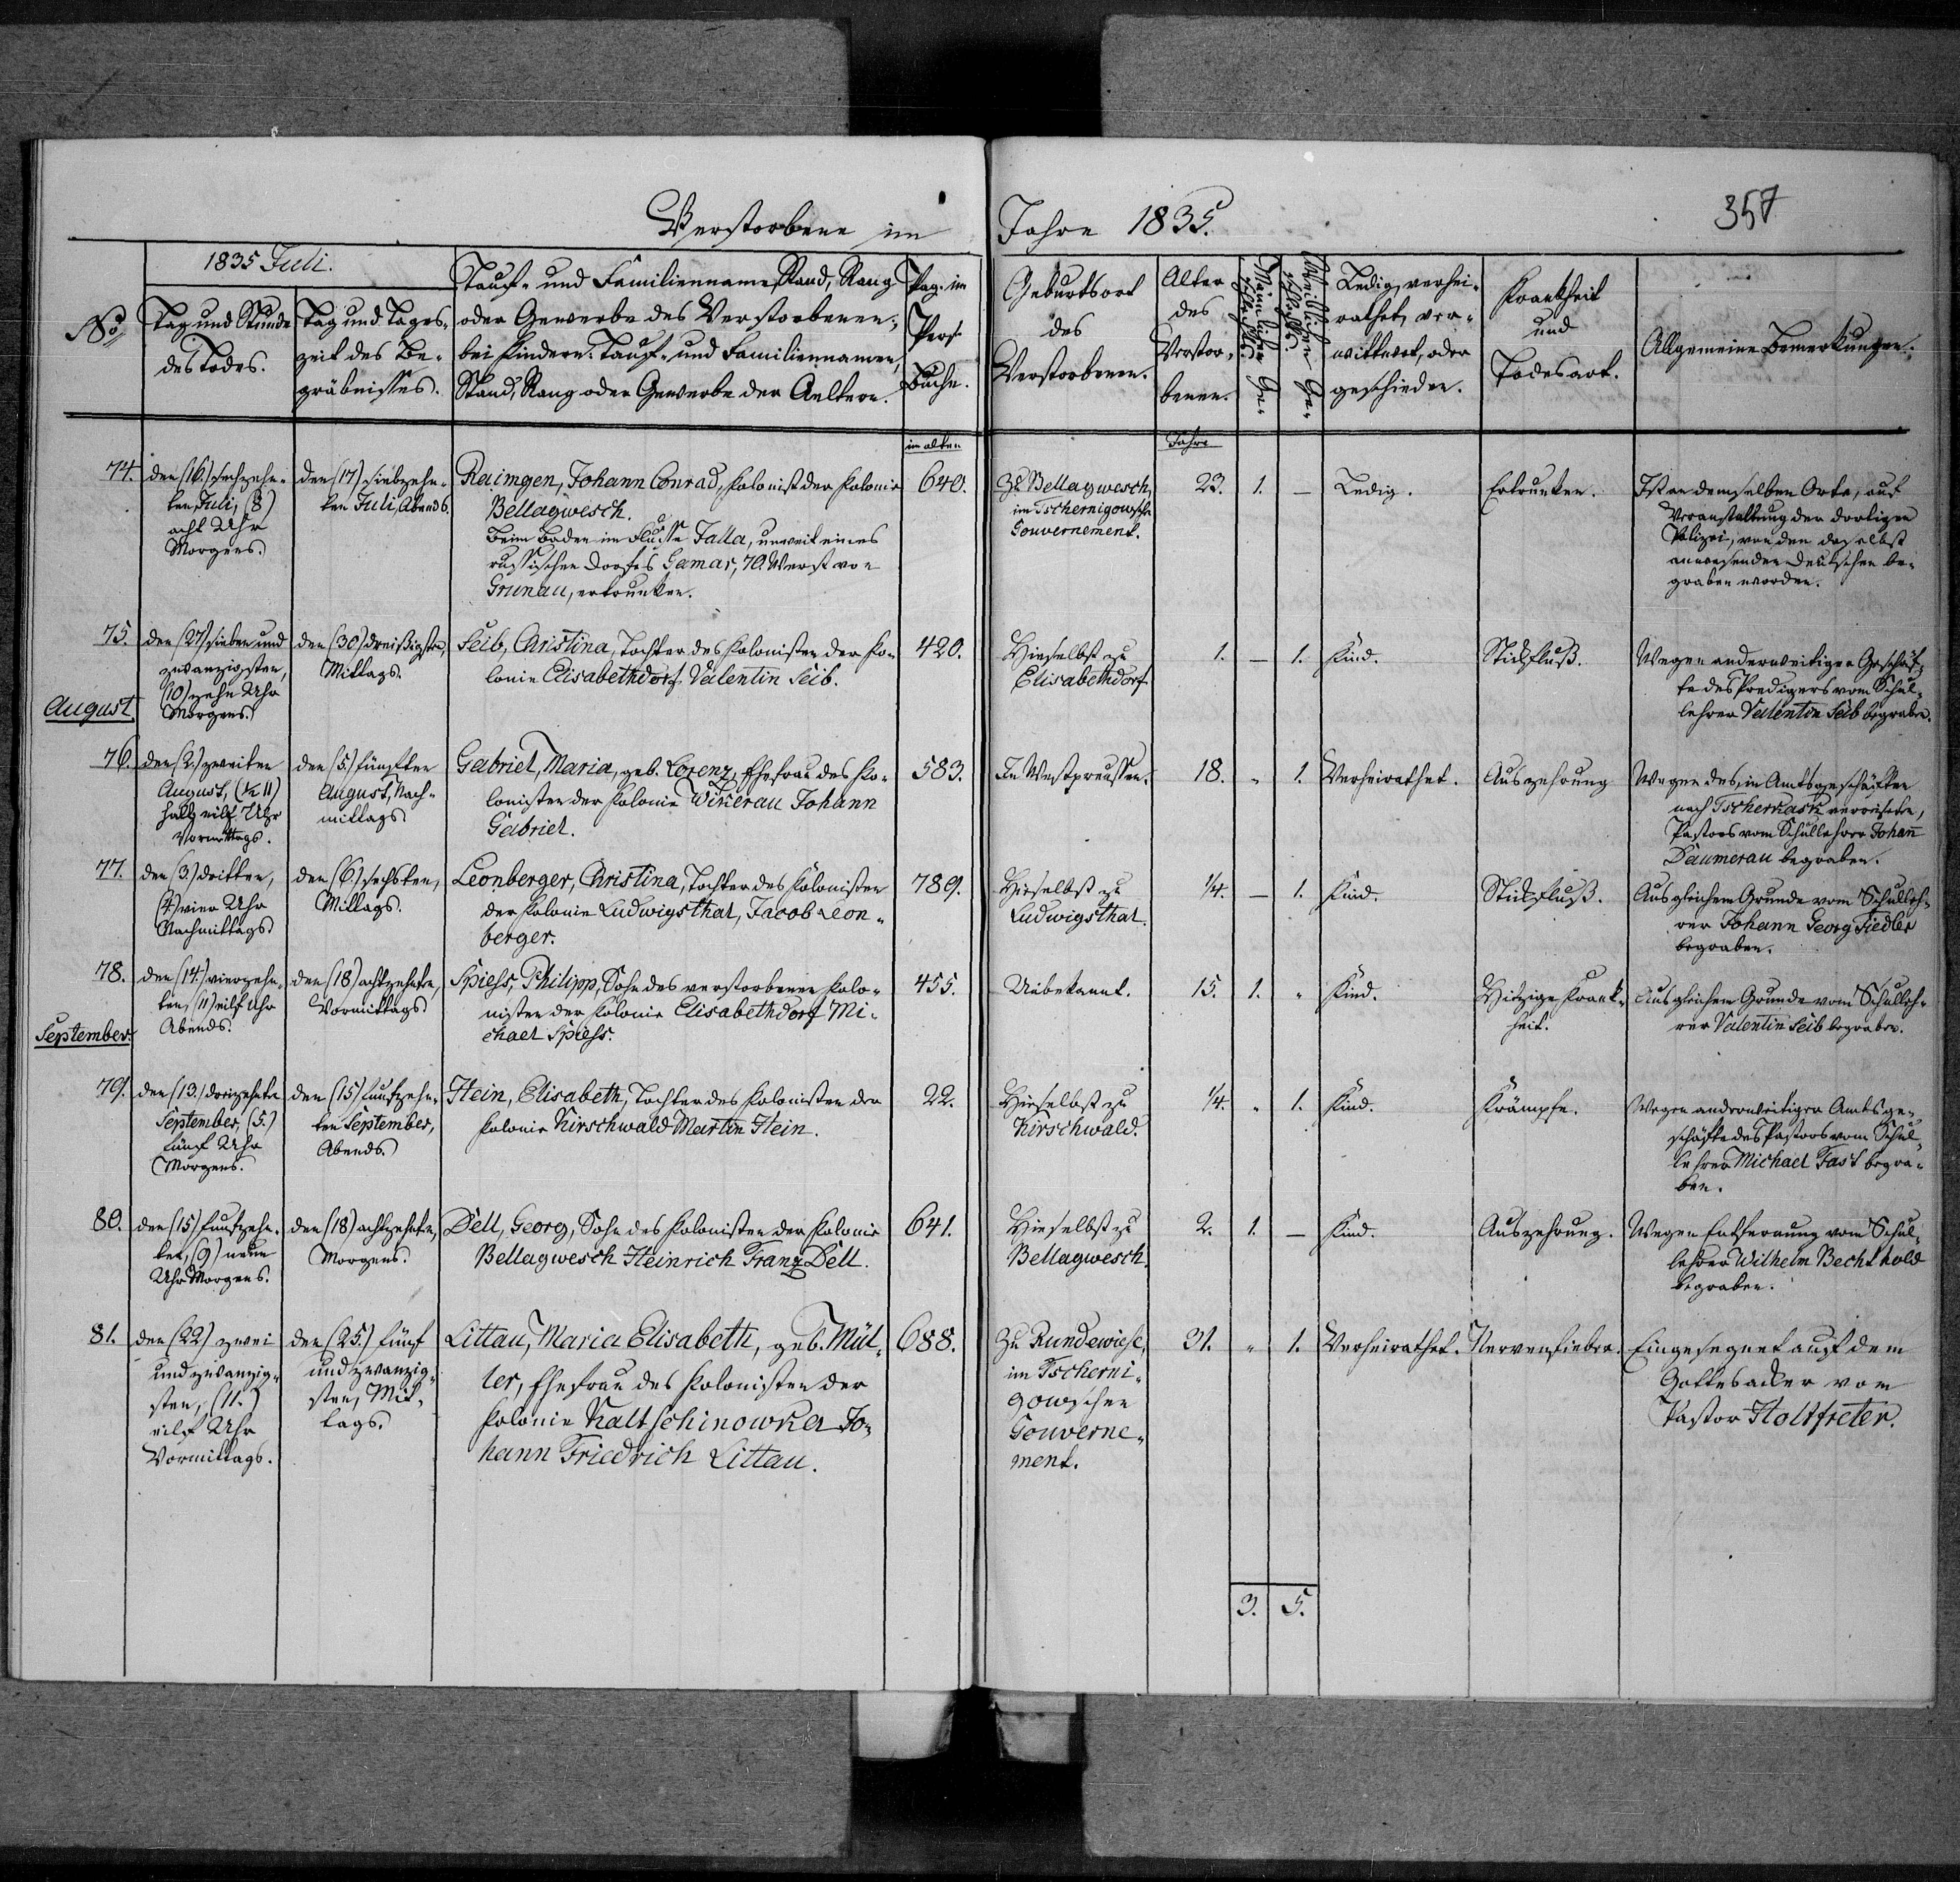 Verstorbene im Jahre 1835.
357
1835 Juli.
No.
Tag und Stunde
des Todes.
Tag und Tages-
zeit des Be-
gräbnisses.
Tauf- und Familienname, Stand, Rang
oder Gewerbe des Verstorbenen;
bei Kindern: Tauf- und Familiennamen,
Stand, Rang oder Gewerbe der Aeltern.
Pag. im
Pers.
Buche.
Geburtsort
des
Verstorbenen.
Alter
des
Verstor-
benen.
Männlichen Ge-
schlechts.
Weiblichen Ge-
schlechts.
Ledig, verhei-
rathet, ver-
wittwet, oder
geschieden.
Krankheit
und
Todesart.
Allgemeine Bemerkungen.
im alten
Jahre
74.
den (16.) sechzehn-
ten Juli, (8)
acht Uhr
Morgens.
den (17) siebzehn-
ten Juli, Abends.
Raimgen, Johann Conrad, Kolonist der Kolonie
Bellagwesch.
Beim Baden im Flusse Jalla, unweit eines
russischen Dorfes Gamar, 70. Werst von
Grunau, ertrunken.
640.
Zu Bellagwesch,
im Tschernigowschen
Gouvernement.
23.
1.
—
Ledig.
Ertrunken.
Ist an demselben Orte, auf
Veranstaltung der dortigen
Polizei, von den daselbst
anwesenden Deutschen be-
graben worden.
75.
den (27) sieben und
zwanzigsten,
(10) zehn Uhr
Morgens.
den (30) dreißigsten,
Mittags.
Seib, Christina, Tochter des Kolonisten der Ko-
lonie Elisabethdorf Valentin Seib.
420.
Hieselbst zu
Elisabethdorf
1.
—
1.
Kind.
Stickfluß.
Wegen anderweitiger Geschäf-
te des Predigers vom Schul-
lehrer Valentin Seib begraben.
August.
76.
den (2.) zweiten
August, (½ 11)
halb eilf Uhr
Vormittags.
den (5.) fünften
August, Nach-
mittags.
Gabriel, Maria, geb. Lorenz, Ehefrau des Ko-
lonisten der Kolonie Wikerau Johann
Gabriel.
583.
In Westpreussen.
18.
"
1.
Verheirathet.
Auszehrung
Wegen des, in Amtsgeschäften
nach Tscherkask verreiseten,
Pastors vom Schullehrer Johann
Daumerau begraben.
77.
den (3.) dritten,
(4) vier Uhr
Nachmittags.
den (6.) sechsten,
Mittags.
Leonberger, Christina, Tochter des Kolonisten
der Kolonie Ludwigsthal, Jacob Leon-
berger.
789.
Hieselbst zu
Ludwigsthal.
1/4.
—
1.
Kind.
Stickfluß.
Aus gleichem Grunde vom Schulleh-
rer Johann Georg Fiedler
begraben.
78.
den (14.) vierzehn-
ten, (11) eilf Uhr
Abends.
den (18) achtzehnten,
Vormittags.
Spiess, Philipp, Sohn des verstorbenen Kolo-
nisten der Kolonie Elisabethdorf Mi-
chael Spiess.
455.
Unbekannt.
15.
1.
"
Kind.
Hitzige Krank-
heit.
Aus gleichem Grunde vom Schulleh-
rer Valentin Seib begraben.
September.
79.
den (13.) dreizehnten
September, (5.)
fünf Uhr
Morgens.
den (15) fünfzehn-
ten September,
Abends.
Hein, Elisabeth, Tochter des Kolonisten der
Kolonie Kirschwald Martin Hein.
22.
Hieselbst zu
Kirschwald.
1/4.
"
1.
Kind.
Krämpfe.
Wegen anderweitiger Amtsge-
schäfte des Pastors vom Schul-
lehrer Michael Fast begra-
ben.
80.
den (15) fünfzehn-
ten, (9) neun
Uhr Morgens.
den (18) achtzehnten,
Morgens.
Dell, Georg, Sohn des Kolonisten der Kolonie
Bellagwesch Heinrich Franz Dell.
641.
Hieselbst zu
Bellagwesch.
2.
1.
—
Kind.
Auszehrung.
Wegen Entfernung vom Schul-
lehrer Wilhelm Bechthold
begraben.
81.
den (22) zwei
und zwanzig-
sten, (11.)
eilf Uhr
Vormittags.
den (25.) fünf
und zwanzig-
sten, Mit-
tags.
Littau, Maria Elisabeth, geb. Mül-
ler, Ehefrau des Kolonisten der
Kolonie Kaltschinowka Jo-
hann Friedrich Littau.
688.
Zu Rundewiese,
im Tscherni-
gowschen
Gouverne-
ment.
31.
"
1.
Verheirathet.
Nervenfieber.
Eingesegnet auf dem
Gottesacker vom
Pastor Holtfreter.
3.
5.